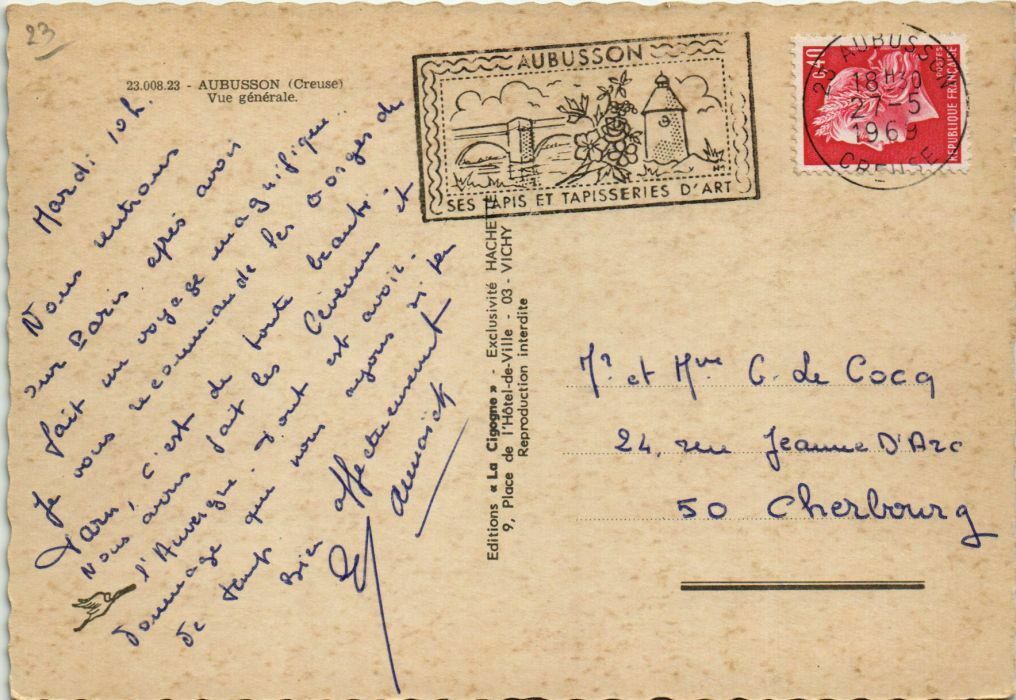 23
23.008.23 - AUBUSSON (Creuse)
Vue générale.
Mardi 10h.
Nous rentrons
sur Paris après avoir
fait un voyage magnifique..
Je vous recommande les Gorges du
Tarn, c'est de toute beauté
Nous avons fait les Cévennes et
l'Auvergne
dommage qu'il nous ayons si peu
de temps
Bien affectueusement
AUBUSSON
SES TAPIS ET TAPISSERIES D'ART
23 AUBUSSON
18 H30
27-5
1969
CREUSE
0,40
POSTES
REPUBLIQUE FRANÇAISE
Editions « La Cigogne » - Exclusivité HACHETTE
9, Place de l'Hôtel-de-Ville - 03 - VICHY
Reproduction interdite
Mr et Mme C. Le Cocq
24, rue Jeanne D'Arc
50 Cherbourg